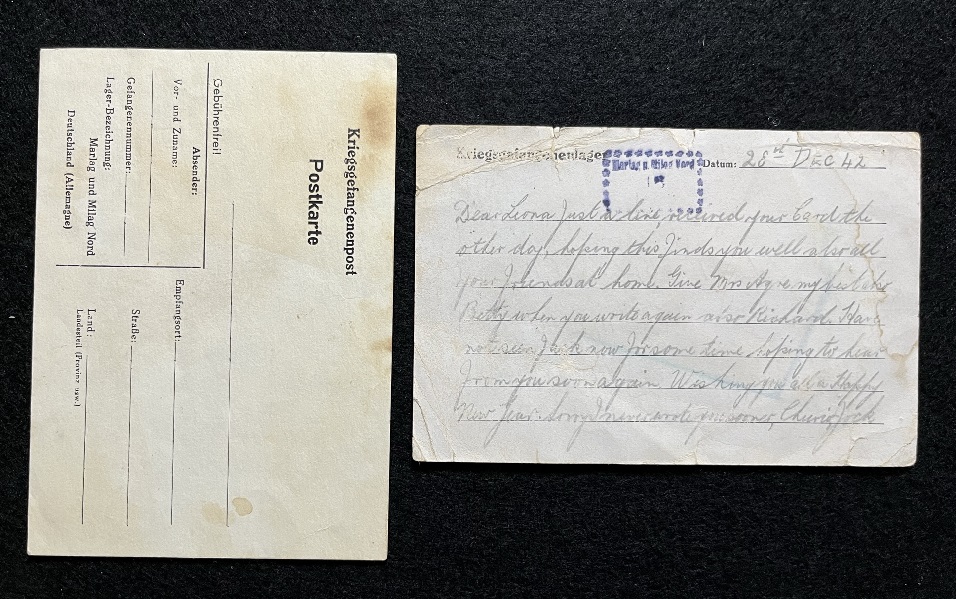 Kriegsgefangenenpost
Postkarte
Gebührenfrei!
Absender:
Vor- und Zuname:
Gefangenennummer:
Lager-Bezeichnung:
Marlag und Milag Nord
Deutschland (Allemagne)
Empfangsort:
Straße:
Land:
Landesteil (Provinz usw.)
Kriegsgefangenenlager Datum: 28 st DEC 42
Marlag u. Milag Nord
Dear Leona Just a line, received your Card the
other day, hoping this finds you well also all
your friends at home. Give Mrs my best also
Betty when you write again also Richard. Have
not seen Jack now for some time hoping to hear
from you soon again. Wishing you all a Happy
New Year. Sorry I never wrote you sooner, Cheerio Jock